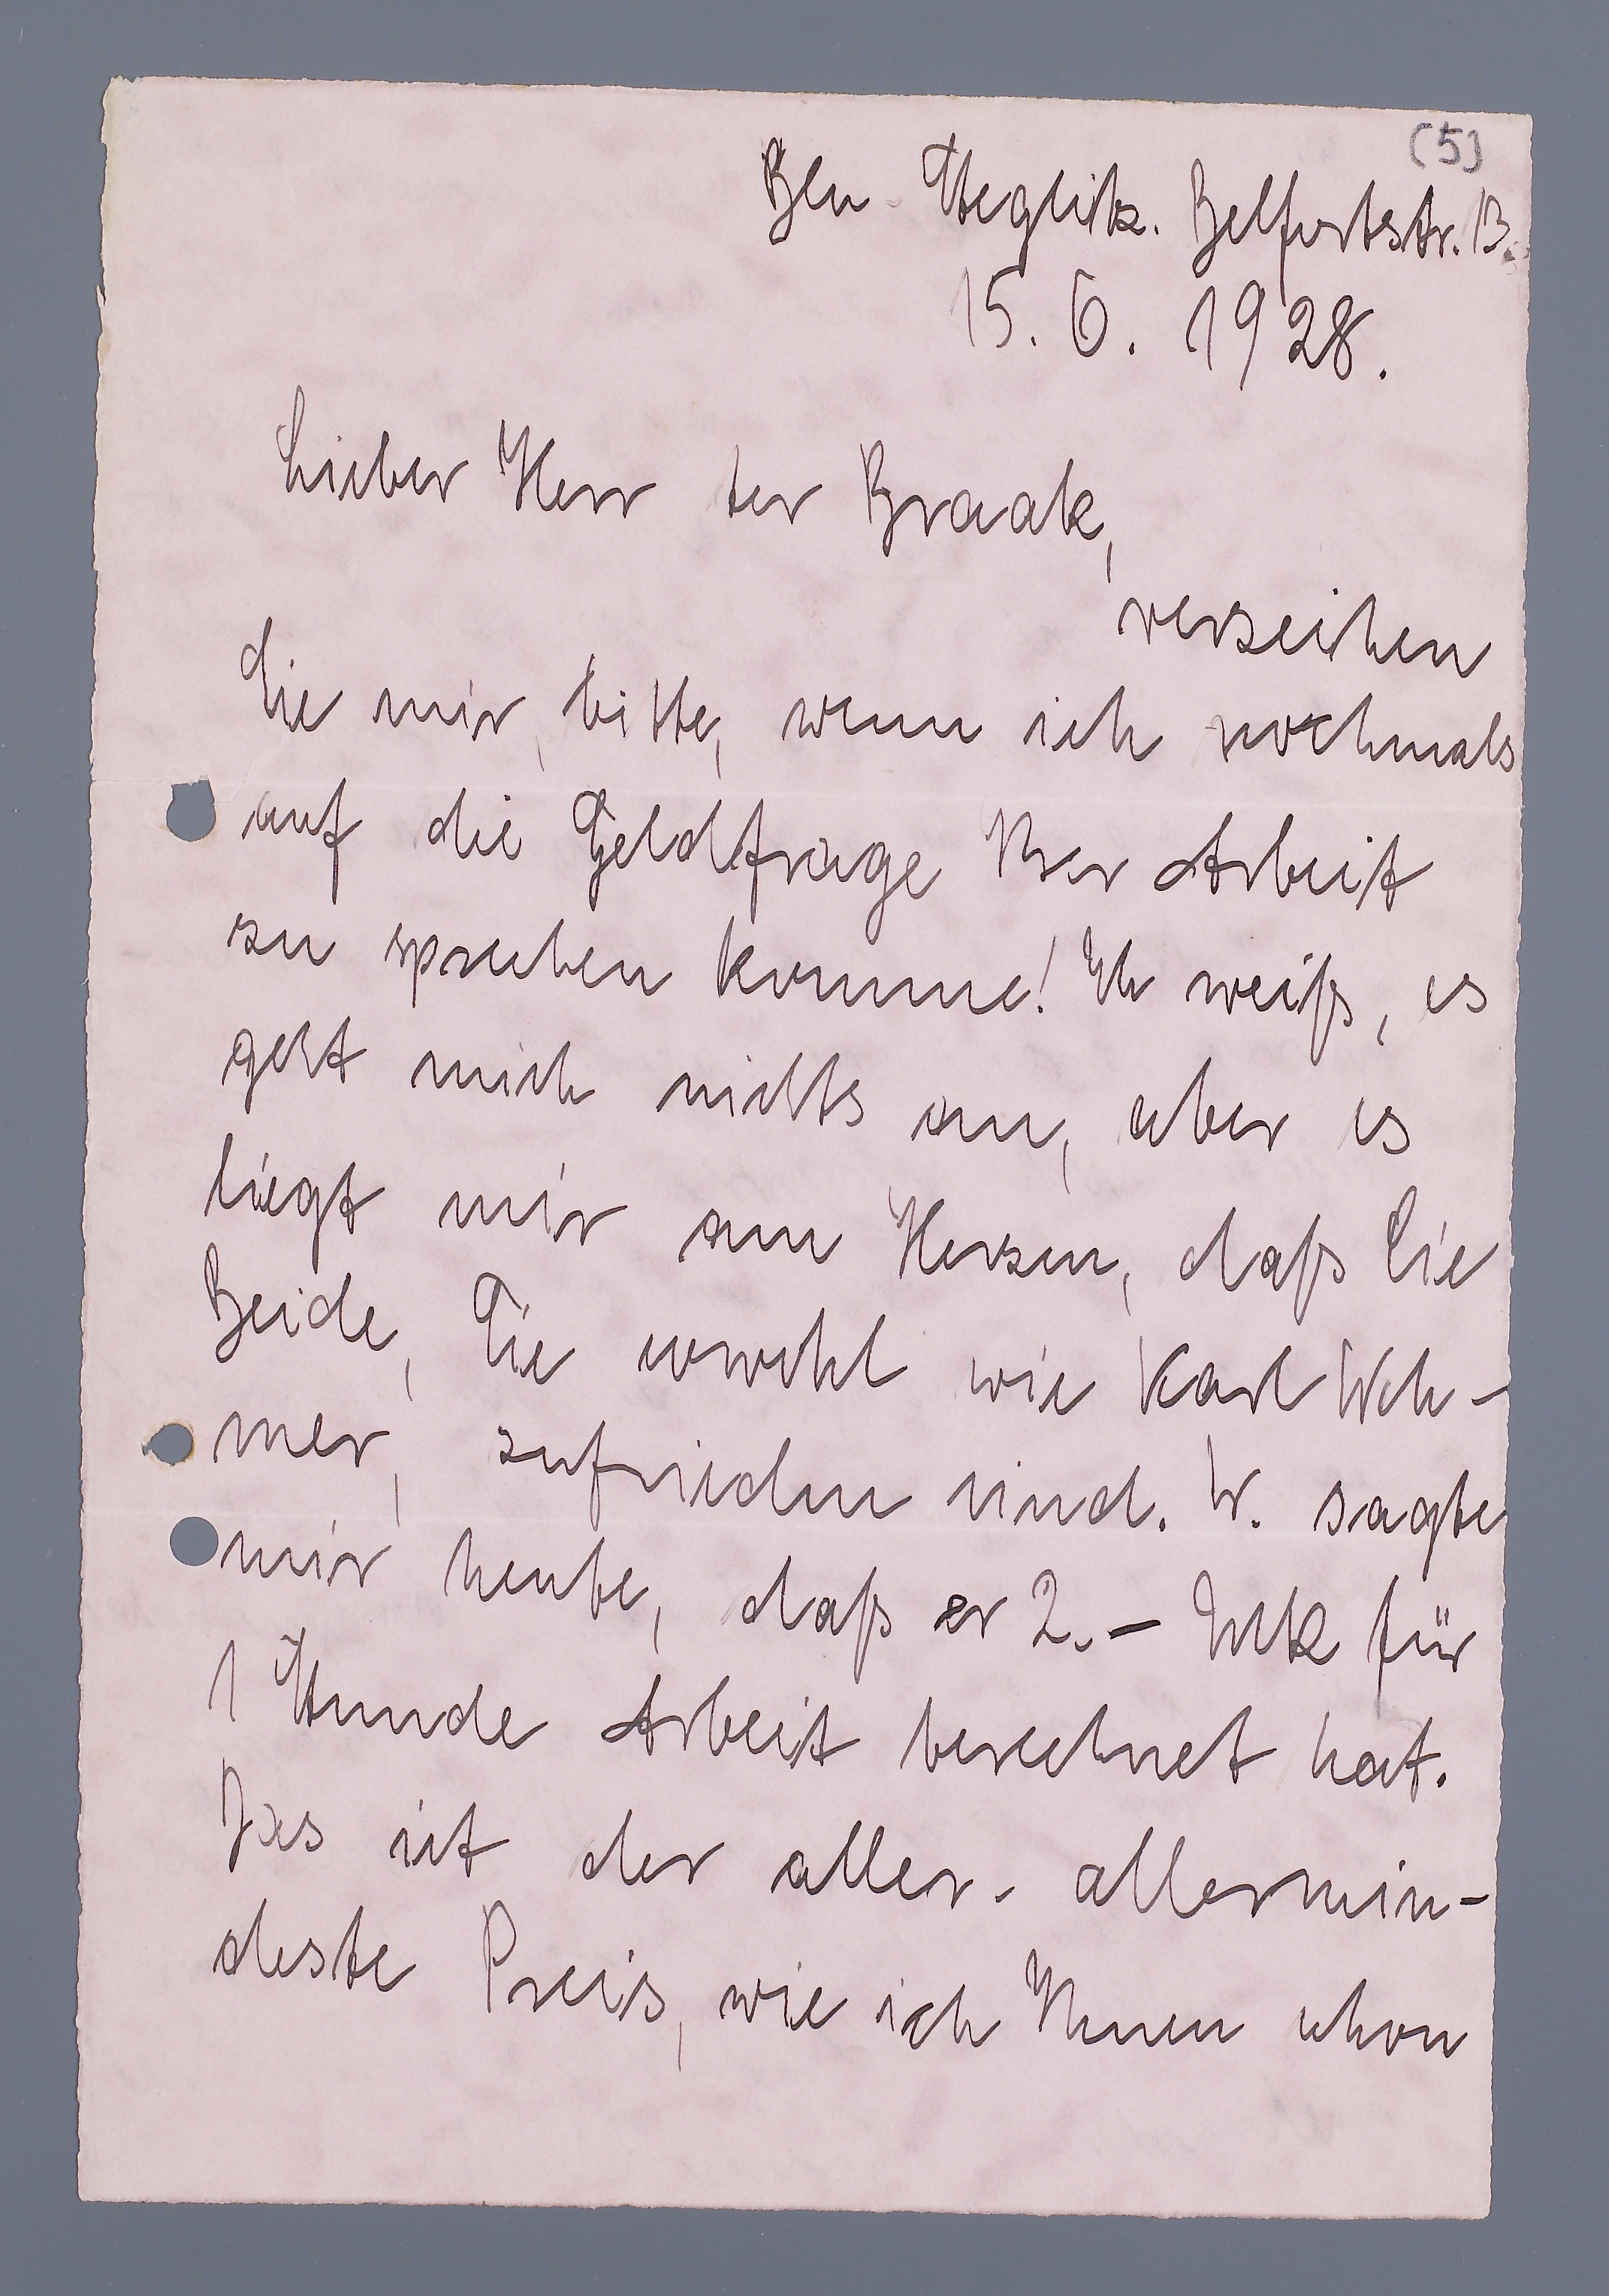 (5)
Bln-Steglitz. Belfortstr. 13.
15. 6. 1928.
Lieber Herr ter Braak,
verzeihen
Sie mir, bitte, wenn ich nochmals
auf die Geldfrage Ihrer Arbeit
zu sprechen komme! Ich weiß, es
geht mich nichts an, aber es
liegt mir am Herzen, daß Sie
Beide, Sie sowohl wie Karl Weh-
mer, zufrieden sind. W. sagte
mir heute, daß er 2.- Mk für
1 Stunde Arbeit berechnet hat.
Das ist der aller- allermin-
deste Preis, wie ich Ihnen schon